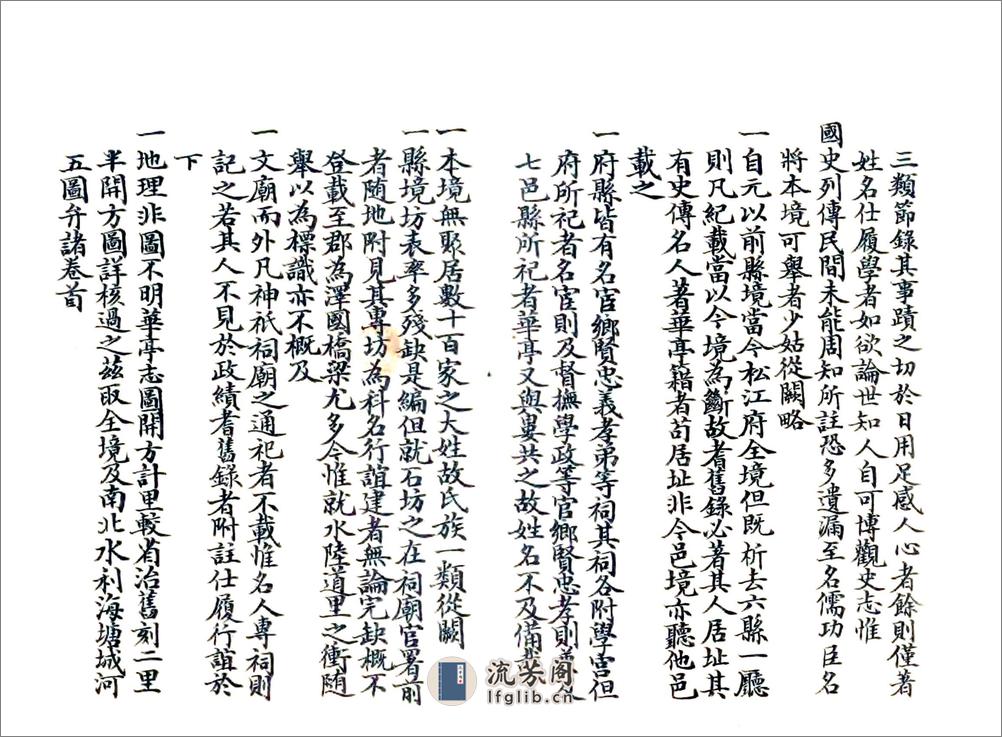 三類節錄其事蹟之切於日用足感人心者餘則僅著
姓名仕履學者如欲論世知人自可博觀史志惟
國史列傳民間未能周知所註恐多遺漏至名儒功臣名
將本境可舉者少姑從闕略
一自元以前縣境當今松江府全境但既析去六縣一廳
則凡紀載當以今境為斷故耆舊錄必著其人居址其
有史傳名人著華亭籍者苟居址非今邑境亦聽他邑
載之
一府縣皆有名宦鄉賢忠義孝弟等祠其祠各附學宮但
府所祀者名宦則及督撫學政等官鄉賢忠孝則
七邑縣所祀者華亭又與婁共之故姓名不及備
一本境無聚居數十百家之大姓故氏族一類從闕
一縣境坊表率多殘缺是編但就石坊之在祠廟官署前
者隨地附見其專坊為科名行誼建者無論完缺概不
登載至郡為澤國橋梁尤多今惟就水陸道里之衝隨
舉以為標識亦不概及
一文廟而外凡神祇祠廟之通祀者不載惟名人專祠則
記之若其人不見於政績耆舊錄者附註仕履行誼於
下
一地理非圖不明華亭志圖開方計里較省治舊刻二里
半開方圖詳核過之茲取全境及南北水利海塘城河
五圖弁諸卷首
流芳阁
lfglib.cn